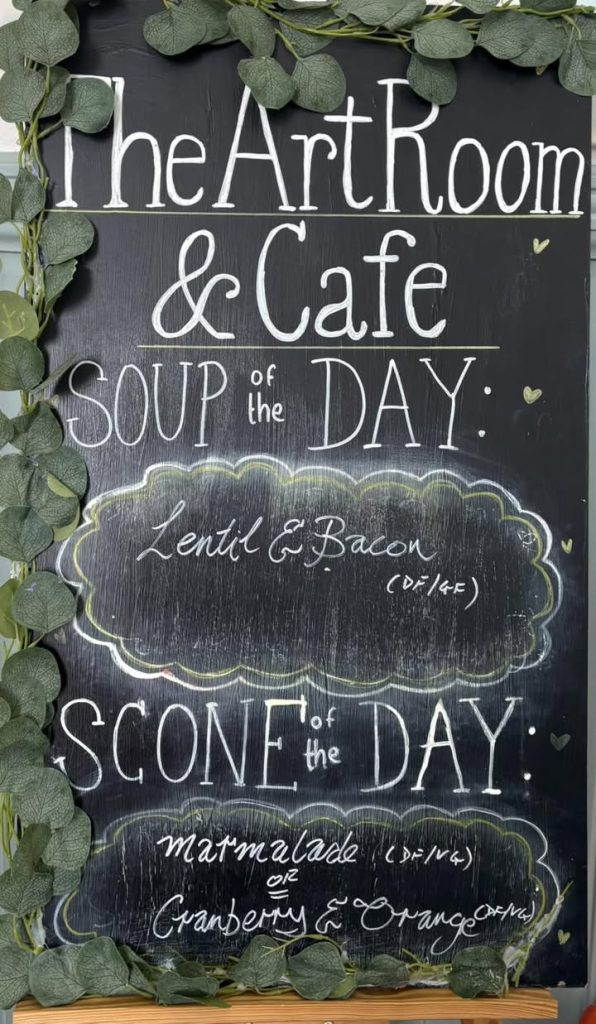 The Art Room
& Cafe
SOUP of the DAY:
Lentil & Bacon
(DF/GF)
SCONE of the DAY:
Marmalade (DF/VG)
OR
Cranberry & Orange (DF/VG)